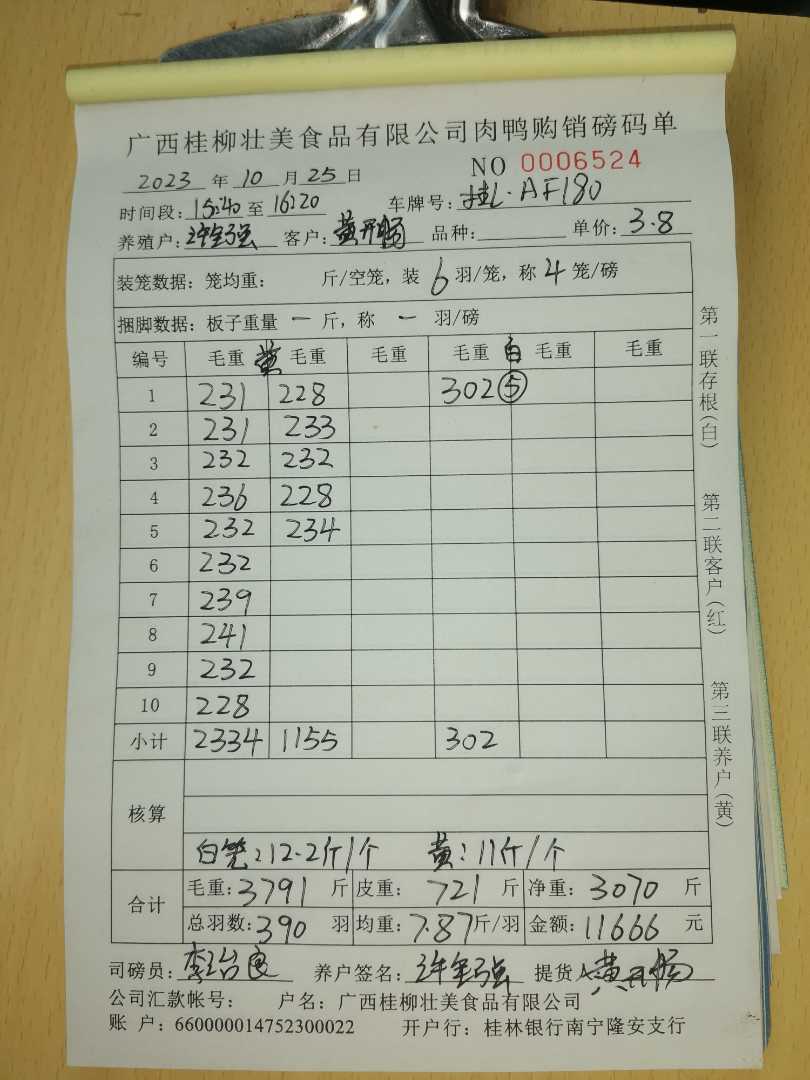 广西桂柳壮美食品有限公司肉鸭购销磅码单
2023 年 10 月 25 日 NO 0006524
时间段: 15:40 至 16:20 车牌号: 桂L·AF180
养殖户: 许金强 客户: 黄开畅 品种: 单价: 3.8
装笼数据: 笼均重: 斤/空笼, 装 6 羽/笼, 称 4 笼/磅
捆脚数据: 板子重量 一 斤, 称 一 羽/磅
编号 毛重 黄 毛重 毛重 毛重 白 毛重 毛重
1 231 228 302 ⑤
2 231 233
3 232 232
4 236 228
5 232 234
6 232
7 239
8 241
9 232
10 228
小计 2334 1155 302
核算
白笼: 12.2斤/个 黄: 11斤/个
合计 毛重: 3791 斤 皮重: 721 斤 净重: 3070 斤
总羽数: 390 羽 均重: 7.87 斤/羽 金额: 11666 元
司磅员: 李治良 养户签名: 许金强 提货人: 黄开畅
公司汇款帐号: 户名: 广西桂柳壮美食品有限公司
账 户: 660000014752300022 开户行: 桂林银行南宁隆安支行
第一联存根(白)
第二联客户(红)
第三联养户(黄)